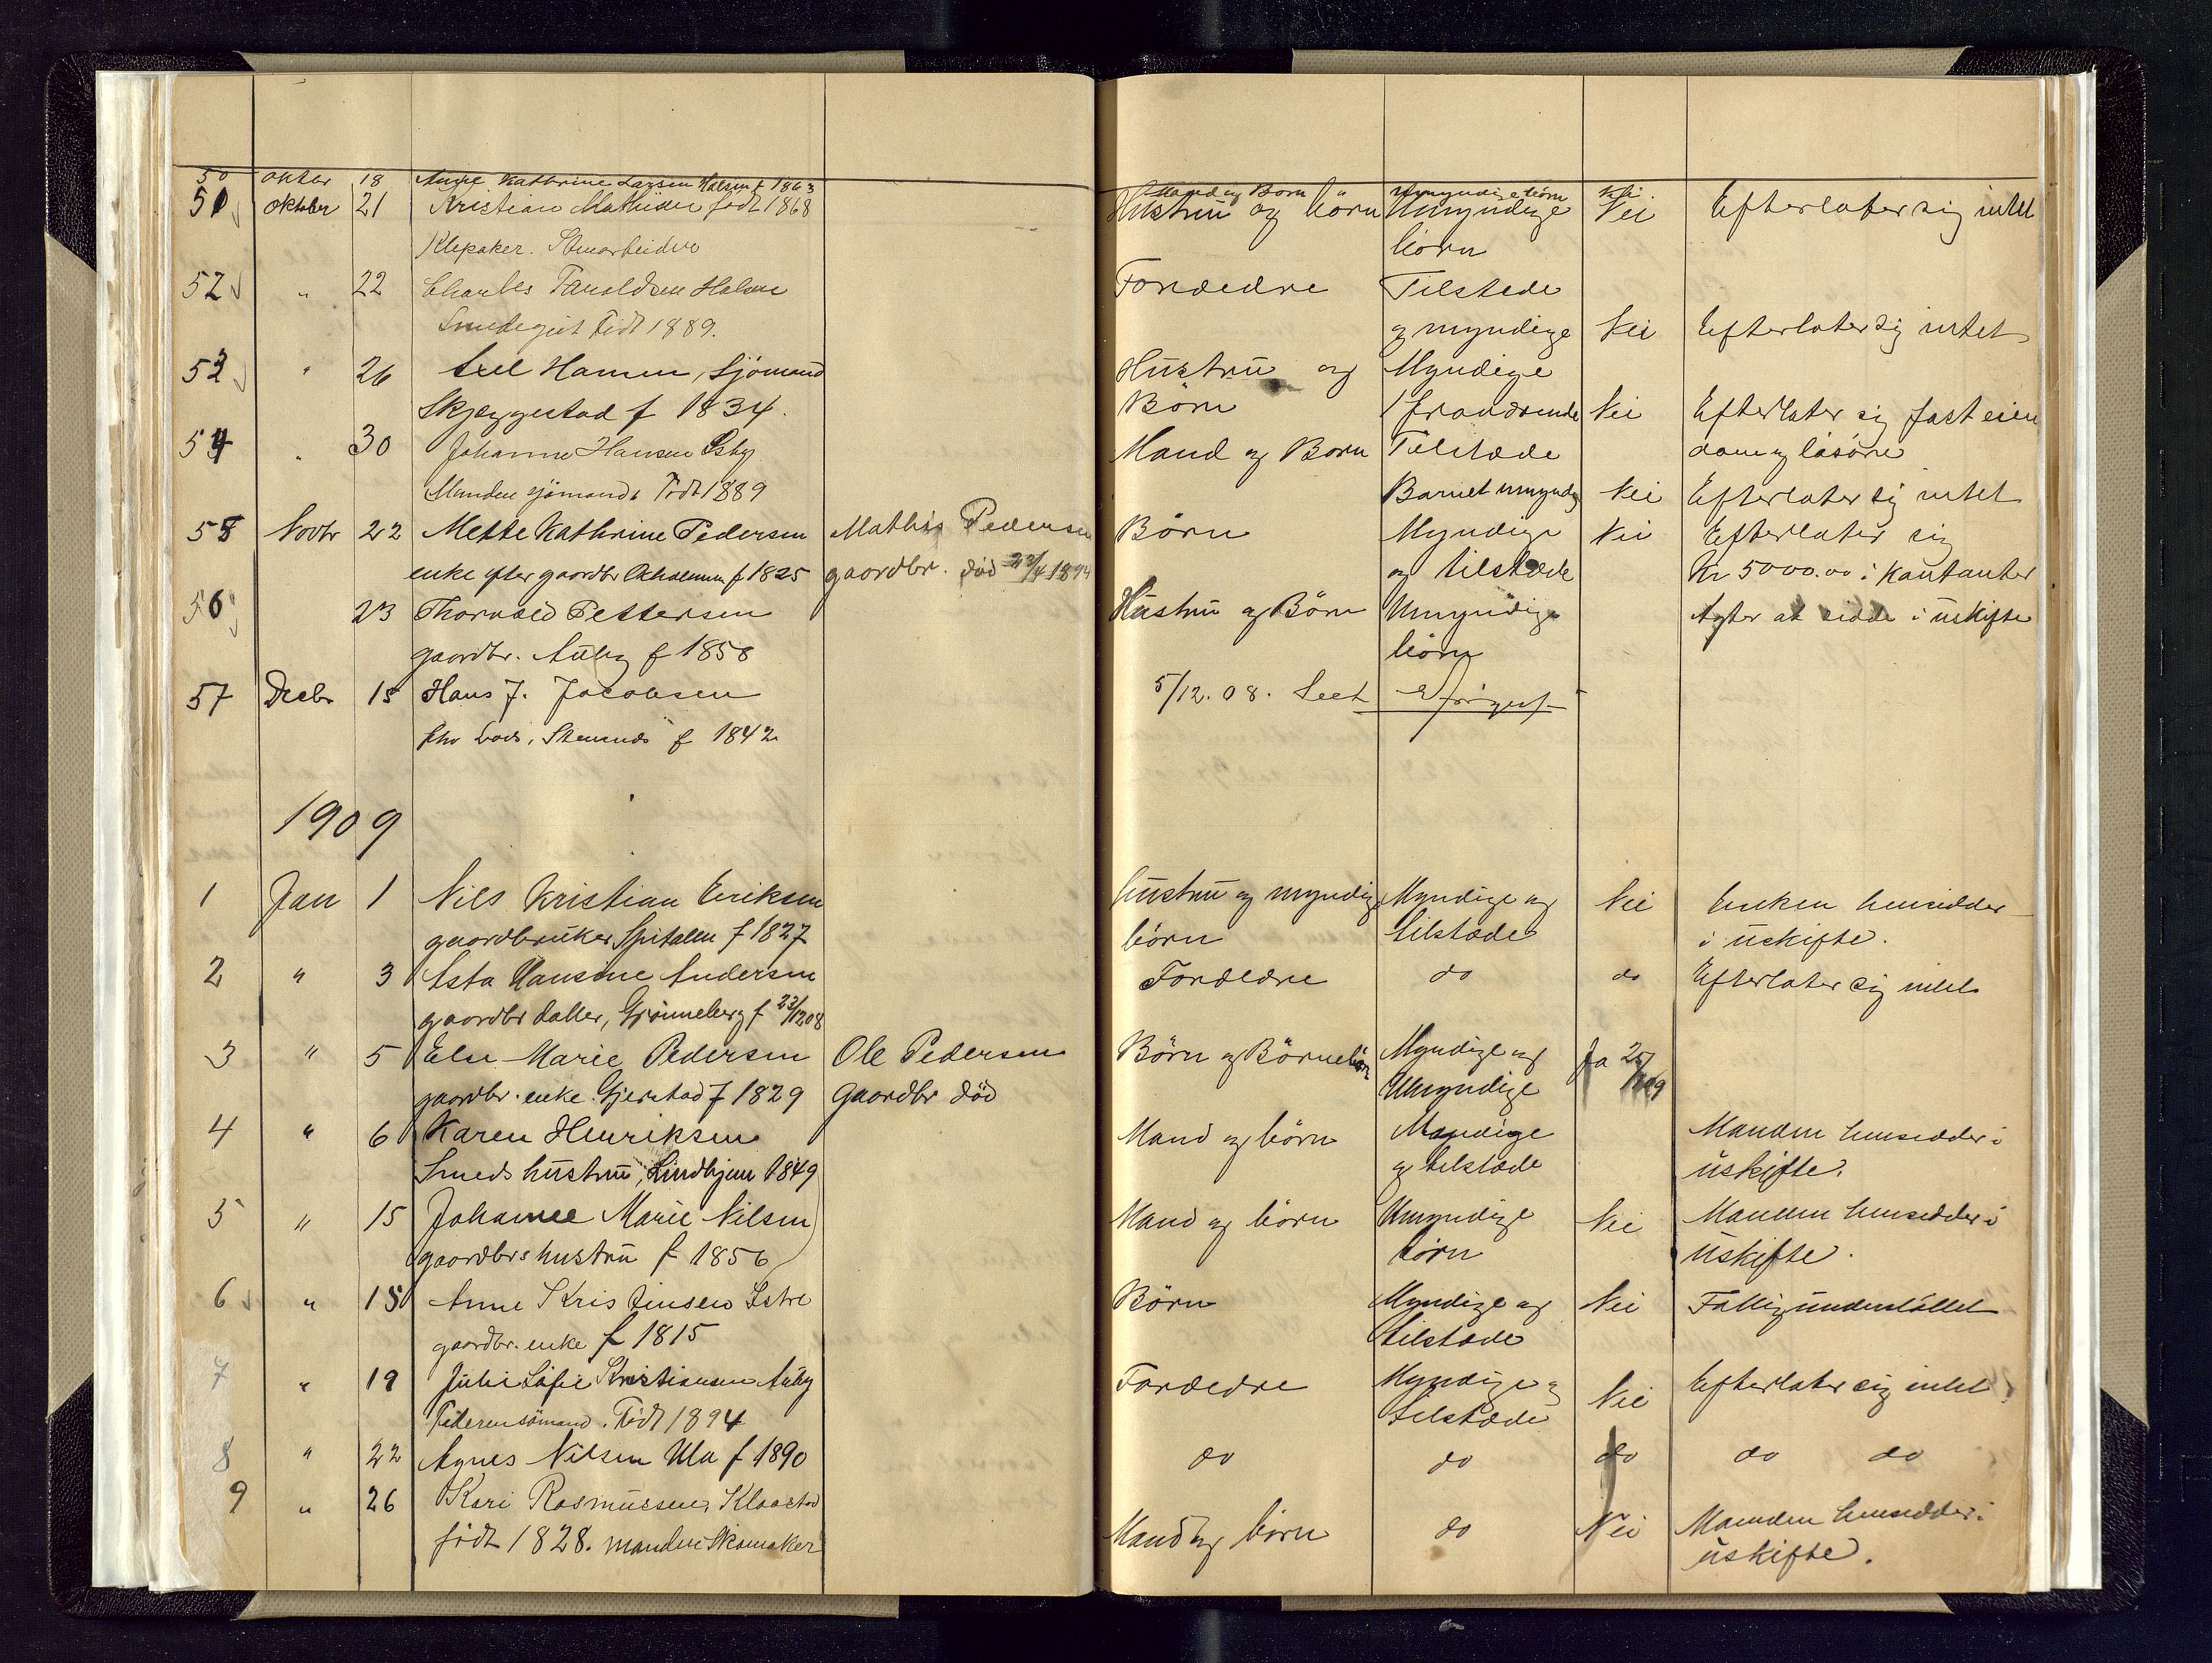 50 oktbr 18 Anne Kathrine Larsen Halsen f 1863 Mand og Børn Umyndige børn Nei.
51 oktober 21 Kristian Mathisen født 1868 Hustru og børn Umyndige Nei Efterlater sig intet
Klepaker. Stenarbeider børn
52 " 22 Charles Haroldsen Halsen Forældre Tilstede
Smedegut Født 1889. og myndige Nei Efterlater sig intet
53 " 26 Axel Hansen, Sjömand Hustru og Myndige
Skjæggestad f 1834. Børn 1 fraværende Nei Efterlater sig fast eien
54 " 30 Johanne Hansen Østby Mand og Barn Tilstæde dom og løsøre
Manden sjømand. Født 1889 Barnet umyndig Nei Efterlater sig intet
55 Novbr 22 Mette Kathrine Pedersen Mathis Pedersen Börn Myndige Nei Efterlater sig
enke efter gaardbr f 1825 gaardbr. död 23/4 1894 og tilstæde Kr 5000.00 i Kontanter
56 23 Thorvald Pettersen Hustru og Børn Umyndige Agter at sidde i uskifte
gaardbr. Auby f 1858 børn
57 Decbr 15 Hans J. Jacobsen 5/12. 08. Seet
fhv Lods, Stensnæs f 1842
1909
1 Jan 1 Nils Kristian Eriksen hustru og myndige Myndige og Nei Enken hensidder
gaardbruker, Spitalen f 1827 börn tilstæde i uskifte.
2 " 3 Asta Hansine Andersen Forældre do do Efterlater sig intet
gaardbr datter, Grönneberg f 23/12 08
3 " 5 Else Marie Pedersen Ole Pedersen Börn og Börnebörn Myndige og Ja 25/1 09
gaardbr. enke. Gjerstad f 1829 Gaardbr död Umyndige
4 " 6 Karen Henriksen Mand og børn Myndige Manden hensidder i
Smeds hustru, Lindhjem 1849 og tilstæde uskifte.
5 " 15 Johanne Marie Nilsen Mand og börn Umyndige Nei Manden hensidder i
gaardbrs hustru f 1856 börn uskifte.
6 " 15 Anne Kristinsen Istre Börn Myndige og Nei Fattigunderstöttet
gaardbr. enke f 1815 tilstæde
7 " 19 Julie Sofie Kristiansen Auby Forældre Myndige og Nei Efterlater sig intet
Federen sömand. Født 1894 tilstæde
8 " 22 Agnes Nilsen Ula f 1890 do do do do do
9 " 26 Kari Rasmussen, Klaastad Mand og børn do Nei Manden hensidder i
født 1828. manden Skomaker uskifte.